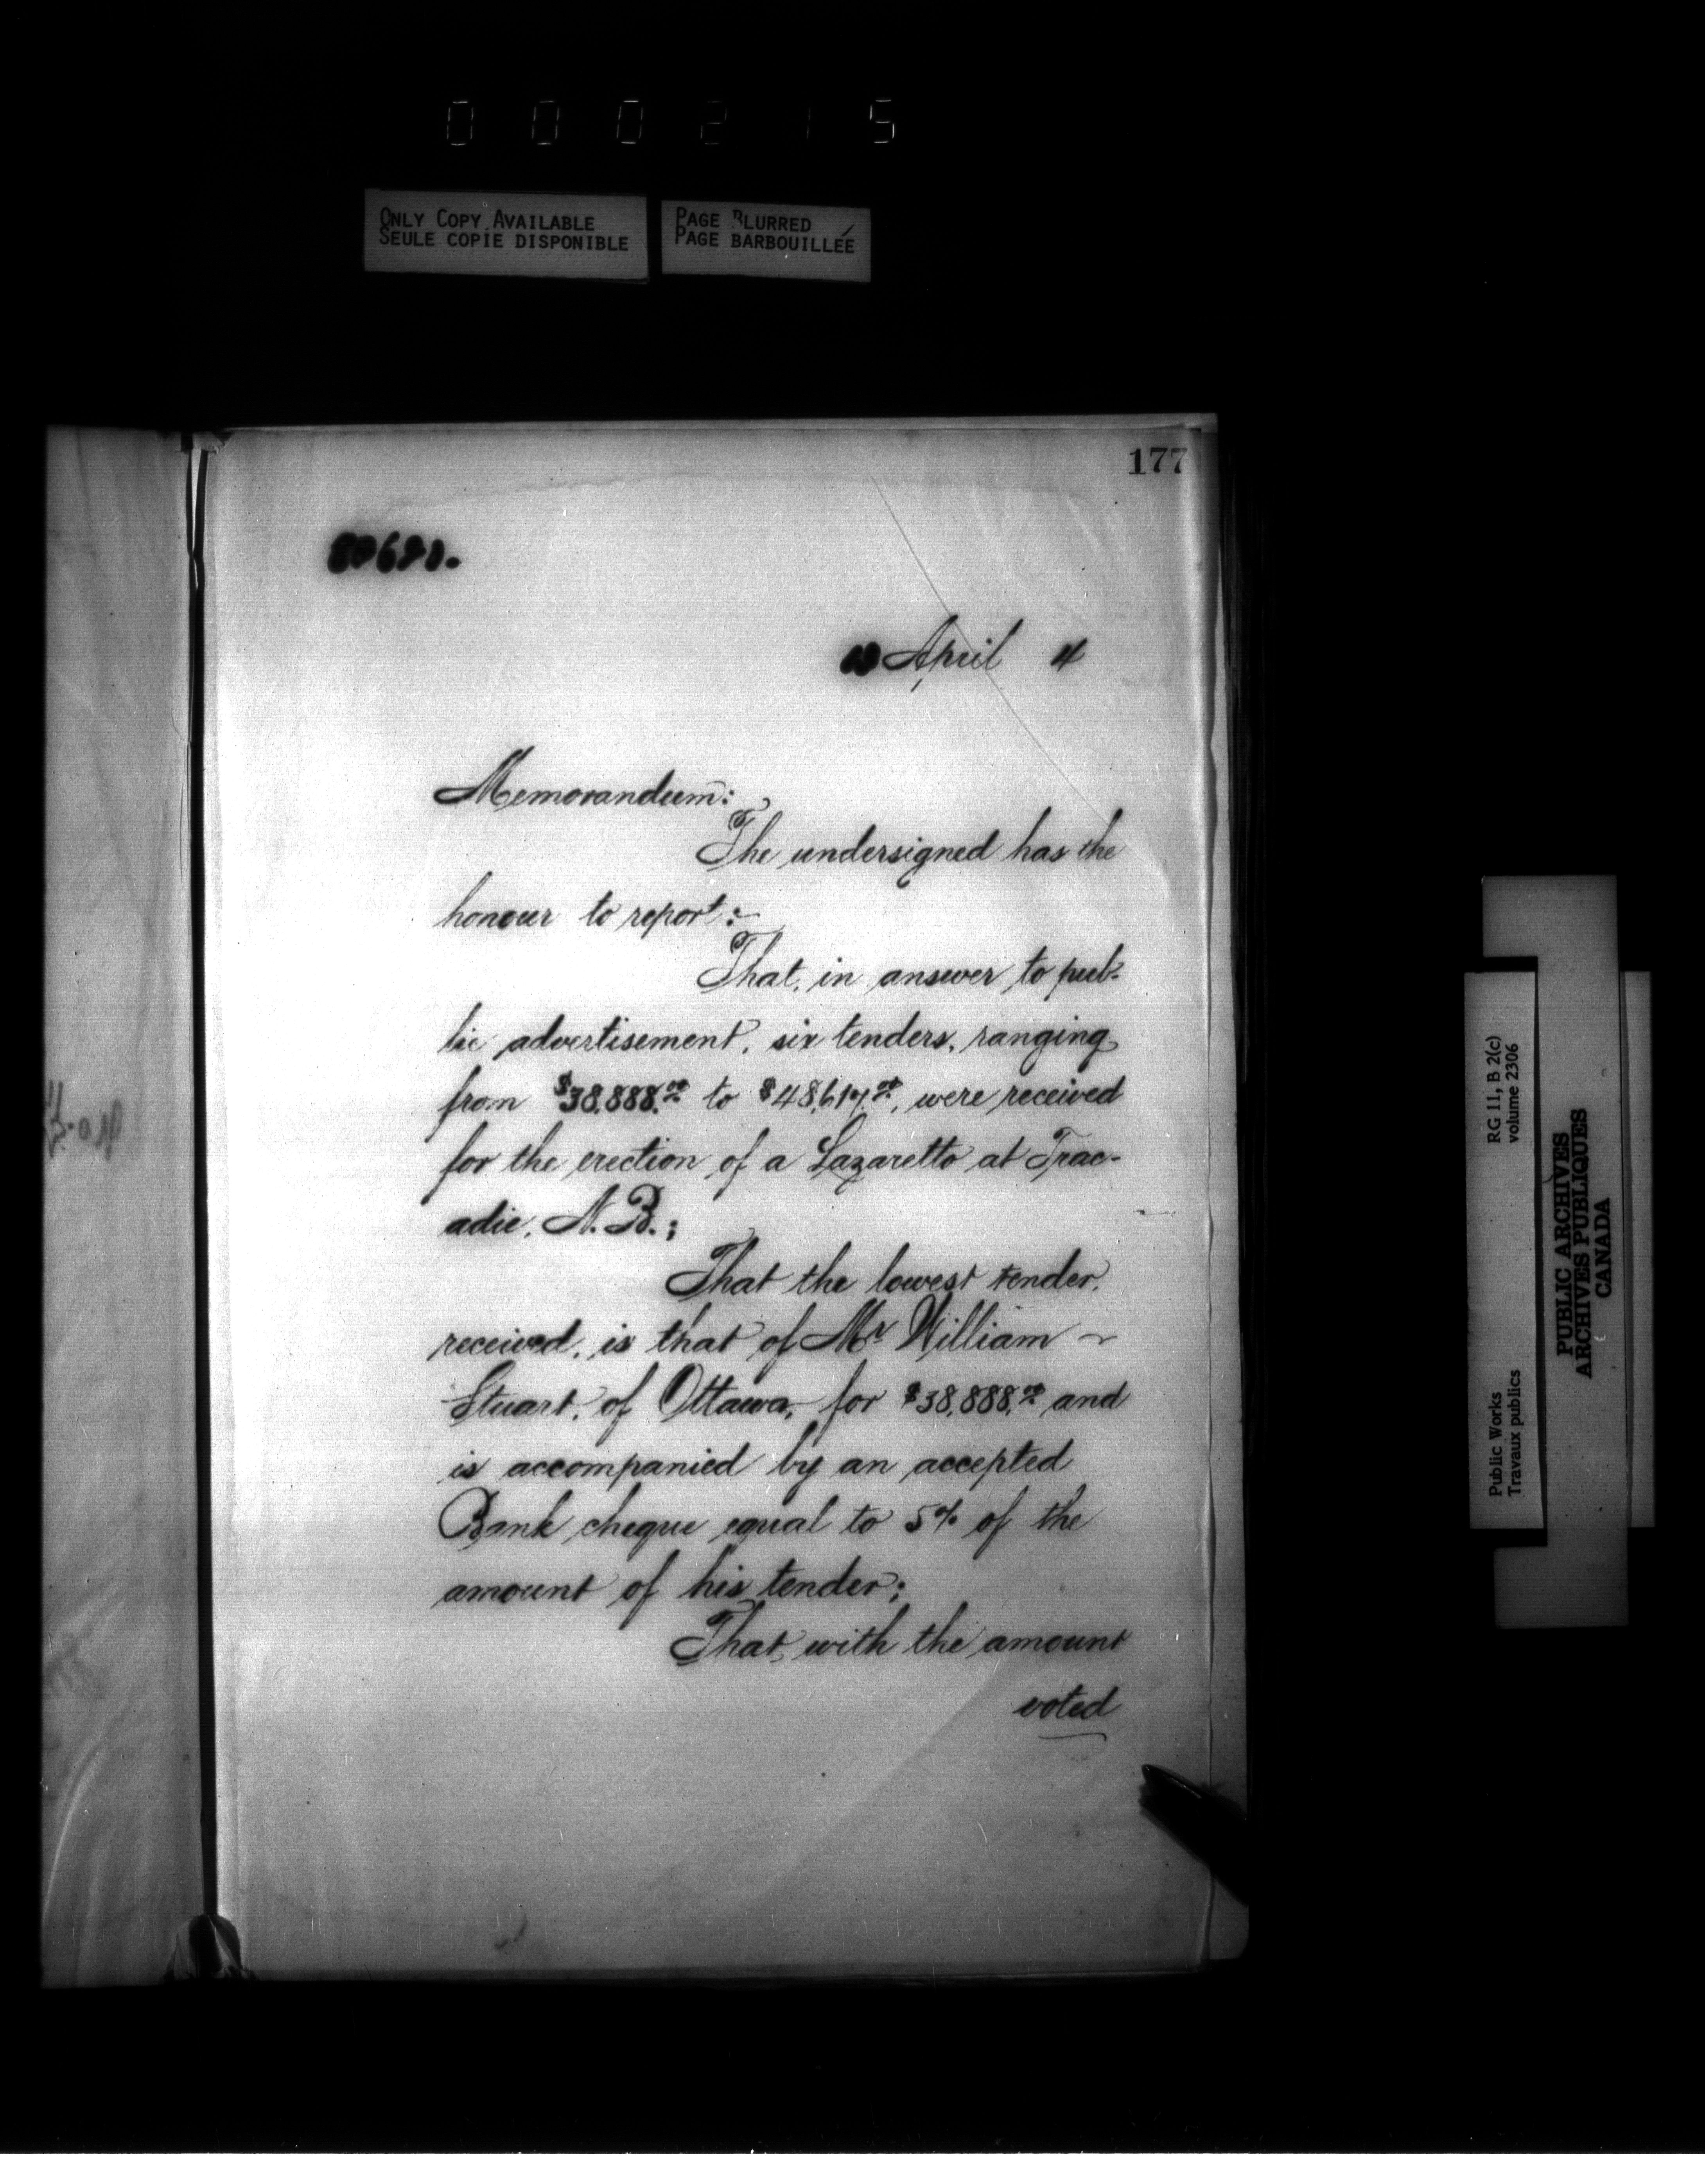 0 0 0 2 1 5
ONLY COPY AVAILABLE
SEULE COPIE DISPONIBLE
PAGE BLURRED
PAGE BARBOUILLÉE
177
April 4
Memorandum:
The undersigned has the
honour to report:-
That, in answer to pub-
lic advertisement, six tenders, ranging
from $38,888.00 to were received
for the erection of a Lazaretto at Trac-
adie, N.B.;
That the lowest tender,
received, is that of Mr William ~
Stuart, of Ottawa, for $38,888.00 and
is accompanied by an accepted
Bank cheque equal to 5% of the
amount of his tender;
That, with the amount
voted
RG 11, B 2(c)
volume 2306
Public Works
Travaux publics
PUBLIC ARCHIVES
ARCHIVES PUBLIQUES
CANADA